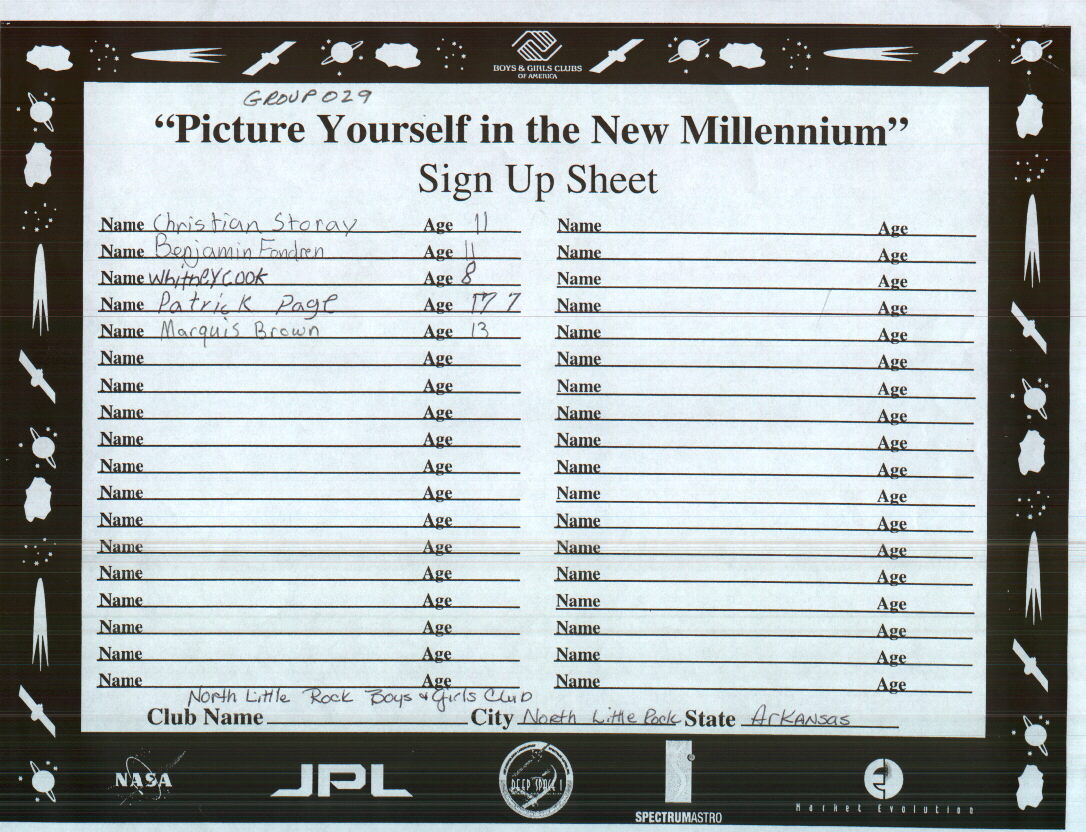 BOYS & GIRLS CLUBS
OF AMERICA
GROUP 029
"Picture Yourself in the New Millennium"
Sign Up Sheet
Name Christian Storay Age 11 Name Age
Name Benjamin Fondren Age 11 Name Age
Name Whitney Cook Age 8 Name Age
Name Patrick Page Age 17 7 Name Age
Name Marquis Brown Age 13 Name Age
Name Age Name Age
Name Age Name Age
Name Age Name Age
Name Age Name Age
Name Age Name Age
Name Age Name Age
Name Age Name Age
Name Age Name Age
Name Age Name Age
Name Age Name Age
Name Age Name Age
Name Age Name Age
Name Age Name Age
North Little Rock Boys & Girls Club
Club Name City North Little Rock State Arkansas
NASA JPL DEEP SPACE 1 SPECTRUMASTRO Market Evolution